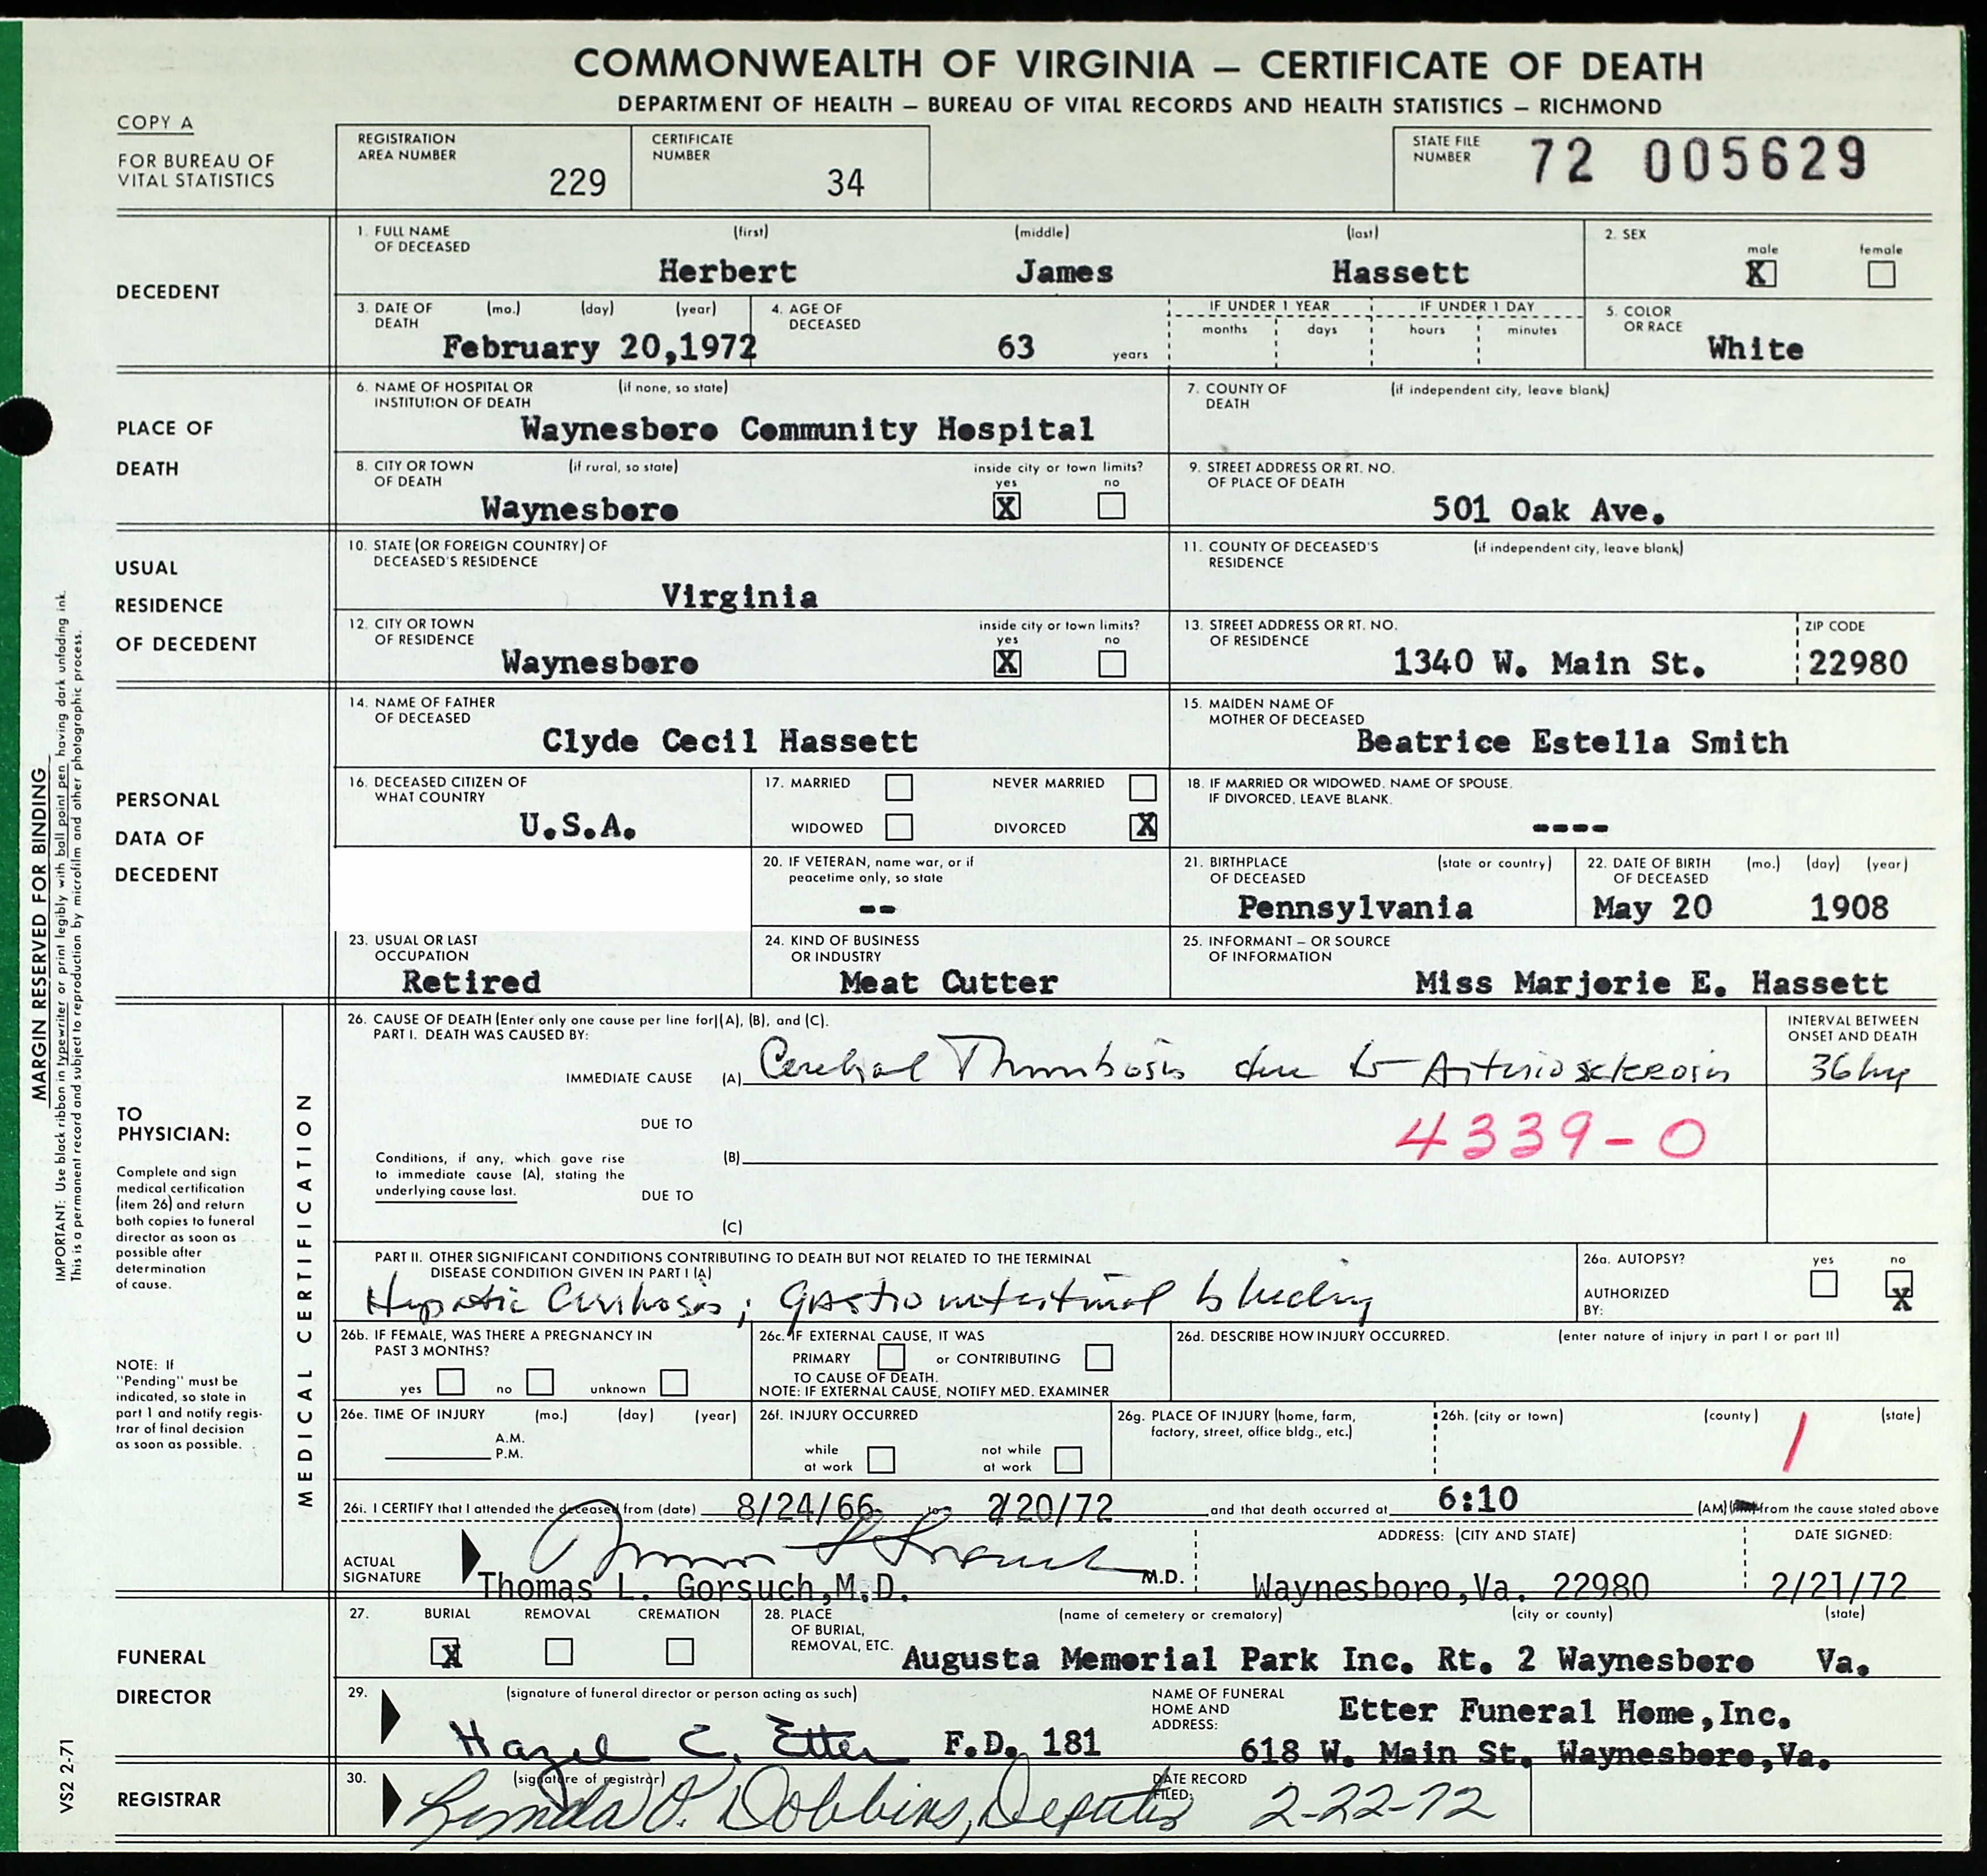 COMMONWEALTH OF VIRGINIA — CERTIFICATE OF DEATH
DEPARTMENT OF HEALTH — BUREAU OF VITAL RECORDS AND HEALTH STATISTICS — RICHMOND
COPY A
FOR BUREAU OF VITAL STATISTICS
REGISTRATION AREA NUMBER 229
CERTIFICATE NUMBER 34
STATE FILE NUMBER 72 005629
DECEDENT
1. FULL NAME OF DECEASED (first) (middle) (last)
Herbert James Hassett
2. SEX male X female
3. DATE OF DEATH (mo.) (day) (year)
February 20,1972
4. AGE OF DECEASED 63 years
IF UNDER 1 YEAR months days
IF UNDER 1 DAY hours minutes
5. COLOR OR RACE White
PLACE OF DEATH
6. NAME OF HOSPITAL OR INSTITUTION OF DEATH (if none, so state)
Waynesboro Community Hospital
7. COUNTY OF DEATH (if independent city, leave blank)
8. CITY OR TOWN OF DEATH (if rural, so state)
Waynesboro
inside city or town limits? yes X no
9. STREET ADDRESS OR RT. NO. OF PLACE OF DEATH
501 Oak Ave.
USUAL RESIDENCE OF DECEDENT
10. STATE (OR FOREIGN COUNTRY) OF DECEASED'S RESIDENCE
Virginia
11. COUNTY OF DECEASED'S RESIDENCE (if independent city, leave blank)
12. CITY OR TOWN OF RESIDENCE
Waynesboro
inside city or town limits? yes X no
13. STREET ADDRESS OR RT. NO. OF RESIDENCE
1340 W. Main St.
ZIP CODE 22980
PERSONAL DATA OF DECEDENT
14. NAME OF FATHER OF DECEASED
Clyde Cecil Hassett
15. MAIDEN NAME OF MOTHER OF DECEASED
Beatrice Estella Smith
16. DECEASED CITIZEN OF WHAT COUNTRY
U.S.A.
17. MARRIED NEVER MARRIED
WIDOWED DIVORCED X
18. IF MARRIED OR WIDOWED, NAME OF SPOUSE. IF DIVORCED, LEAVE BLANK.
----
20. IF VETERAN, name war, or if peacetime only, so state
--
21. BIRTHPLACE OF DECEASED (state or country)
Pennsylvania
22. DATE OF BIRTH OF DECEASED (mo.) (day) (year)
May 20 1908
23. USUAL OR LAST OCCUPATION
Retired
24. KIND OF BUSINESS OR INDUSTRY
Meat Cutter
25. INFORMANT – OR SOURCE OF INFORMATION
Miss Marjorie E. Hassett
MARGIN RESERVED FOR BINDING
IMPORTANT: Use black ribbon in typewriter or print legibly with ball point pen having dark unfading ink.
This is a permanent record and subject to reproduction by microfilm and other photographic process.
TO PHYSICIAN:
Complete and sign
medical certification
(item 26) and return
both copies to funeral
director as soon as
possible after
determination
of cause.
NOTE: If
"Pending" must be
indicated, so state in
part 1 and notify regis-
trar of final decision
as soon as possible.
MEDICAL CERTIFICATION
26. CAUSE OF DEATH (Enter only one cause per line for (A), (B), and (C).
PART I. DEATH WAS CAUSED BY:
INTERVAL BETWEEN ONSET AND DEATH
IMMEDIATE CAUSE (A) Cerebral Thrombosis due to Arteriosclerosis 36 hrs
DUE TO
4339-0
Conditions, if any, which gave rise to immediate cause (A), stating the underlying cause last.
(B)
DUE TO
(C)
PART II. OTHER SIGNIFICANT CONDITIONS CONTRIBUTING TO DEATH BUT NOT RELATED TO THE TERMINAL DISEASE CONDITION GIVEN IN PART I (A)
Hepatic Cirrhosis; gastrointestinal bleeding
26a. AUTOPSY? yes no X
AUTHORIZED BY:
26b. IF FEMALE, WAS THERE A PREGNANCY IN PAST 3 MONTHS?
yes no unknown
26c. IF EXTERNAL CAUSE, IT WAS
PRIMARY or CONTRIBUTING
TO CAUSE OF DEATH.
NOTE: IF EXTERNAL CAUSE, NOTIFY MED. EXAMINER
26d. DESCRIBE HOW INJURY OCCURRED. (enter nature of injury in part I or part II)
26e. TIME OF INJURY (mo.) (day) (year)
A.M.
P.M.
26f. INJURY OCCURRED
while at work not while at work
26g. PLACE OF INJURY (home, farm, factory, street, office bldg., etc.)
26h. (city or town) (county) (state)
1
26i. I CERTIFY that I attended the deceased from (date) 8/24/66 to 2/20/72 and that death occurred at 6:10 (AM) from the cause stated above
ACTUAL SIGNATURE
Thomas L. Gorsuch,M.D. M.D.
ADDRESS: (CITY AND STATE)
Waynesboro,Va. 22980
DATE SIGNED:
2/21/72
FUNERAL DIRECTOR
27. BURIAL X REMOVAL CREMATION
28. PLACE OF BURIAL, REMOVAL, ETC. (name of cemetery or crematory) (city or county) (state)
Augusta Memorial Park Inc. Rt. 2 Waynesboro Va.
29. (signature of funeral director or person acting as such)
Hazel C. Etter F.D. 181
NAME OF FUNERAL HOME AND ADDRESS:
Etter Funeral Home,Inc.
618 W. Main St. Waynesboro,Va.
REGISTRAR
30. (signature of registrar)
Linda P. Dobbins, Deputy
DATE RECORD FILED:
2-22-72
VS2 2-71